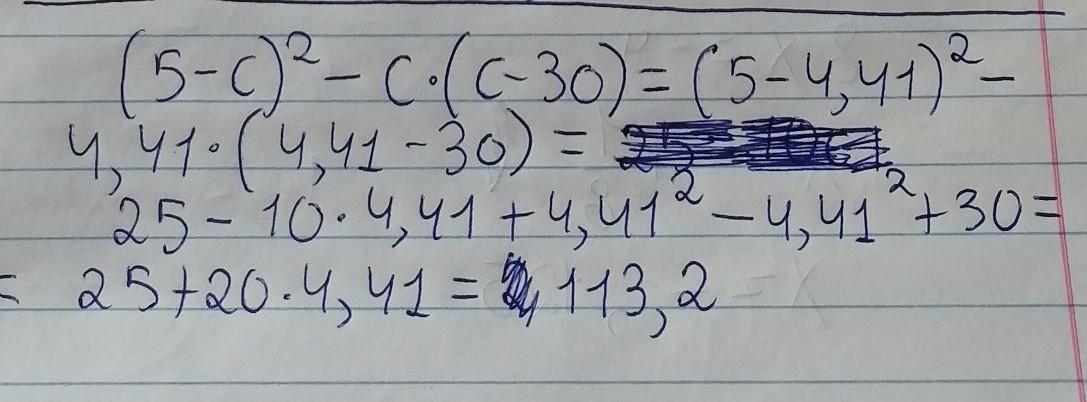 (5-c)² - c·(c-30) = (5-4,41)² -
4,41·(4,41-30) =
25 - 10·4,41 + 4,41² - 4,41² + 30 =
= 25+20·4,41 = 113,2